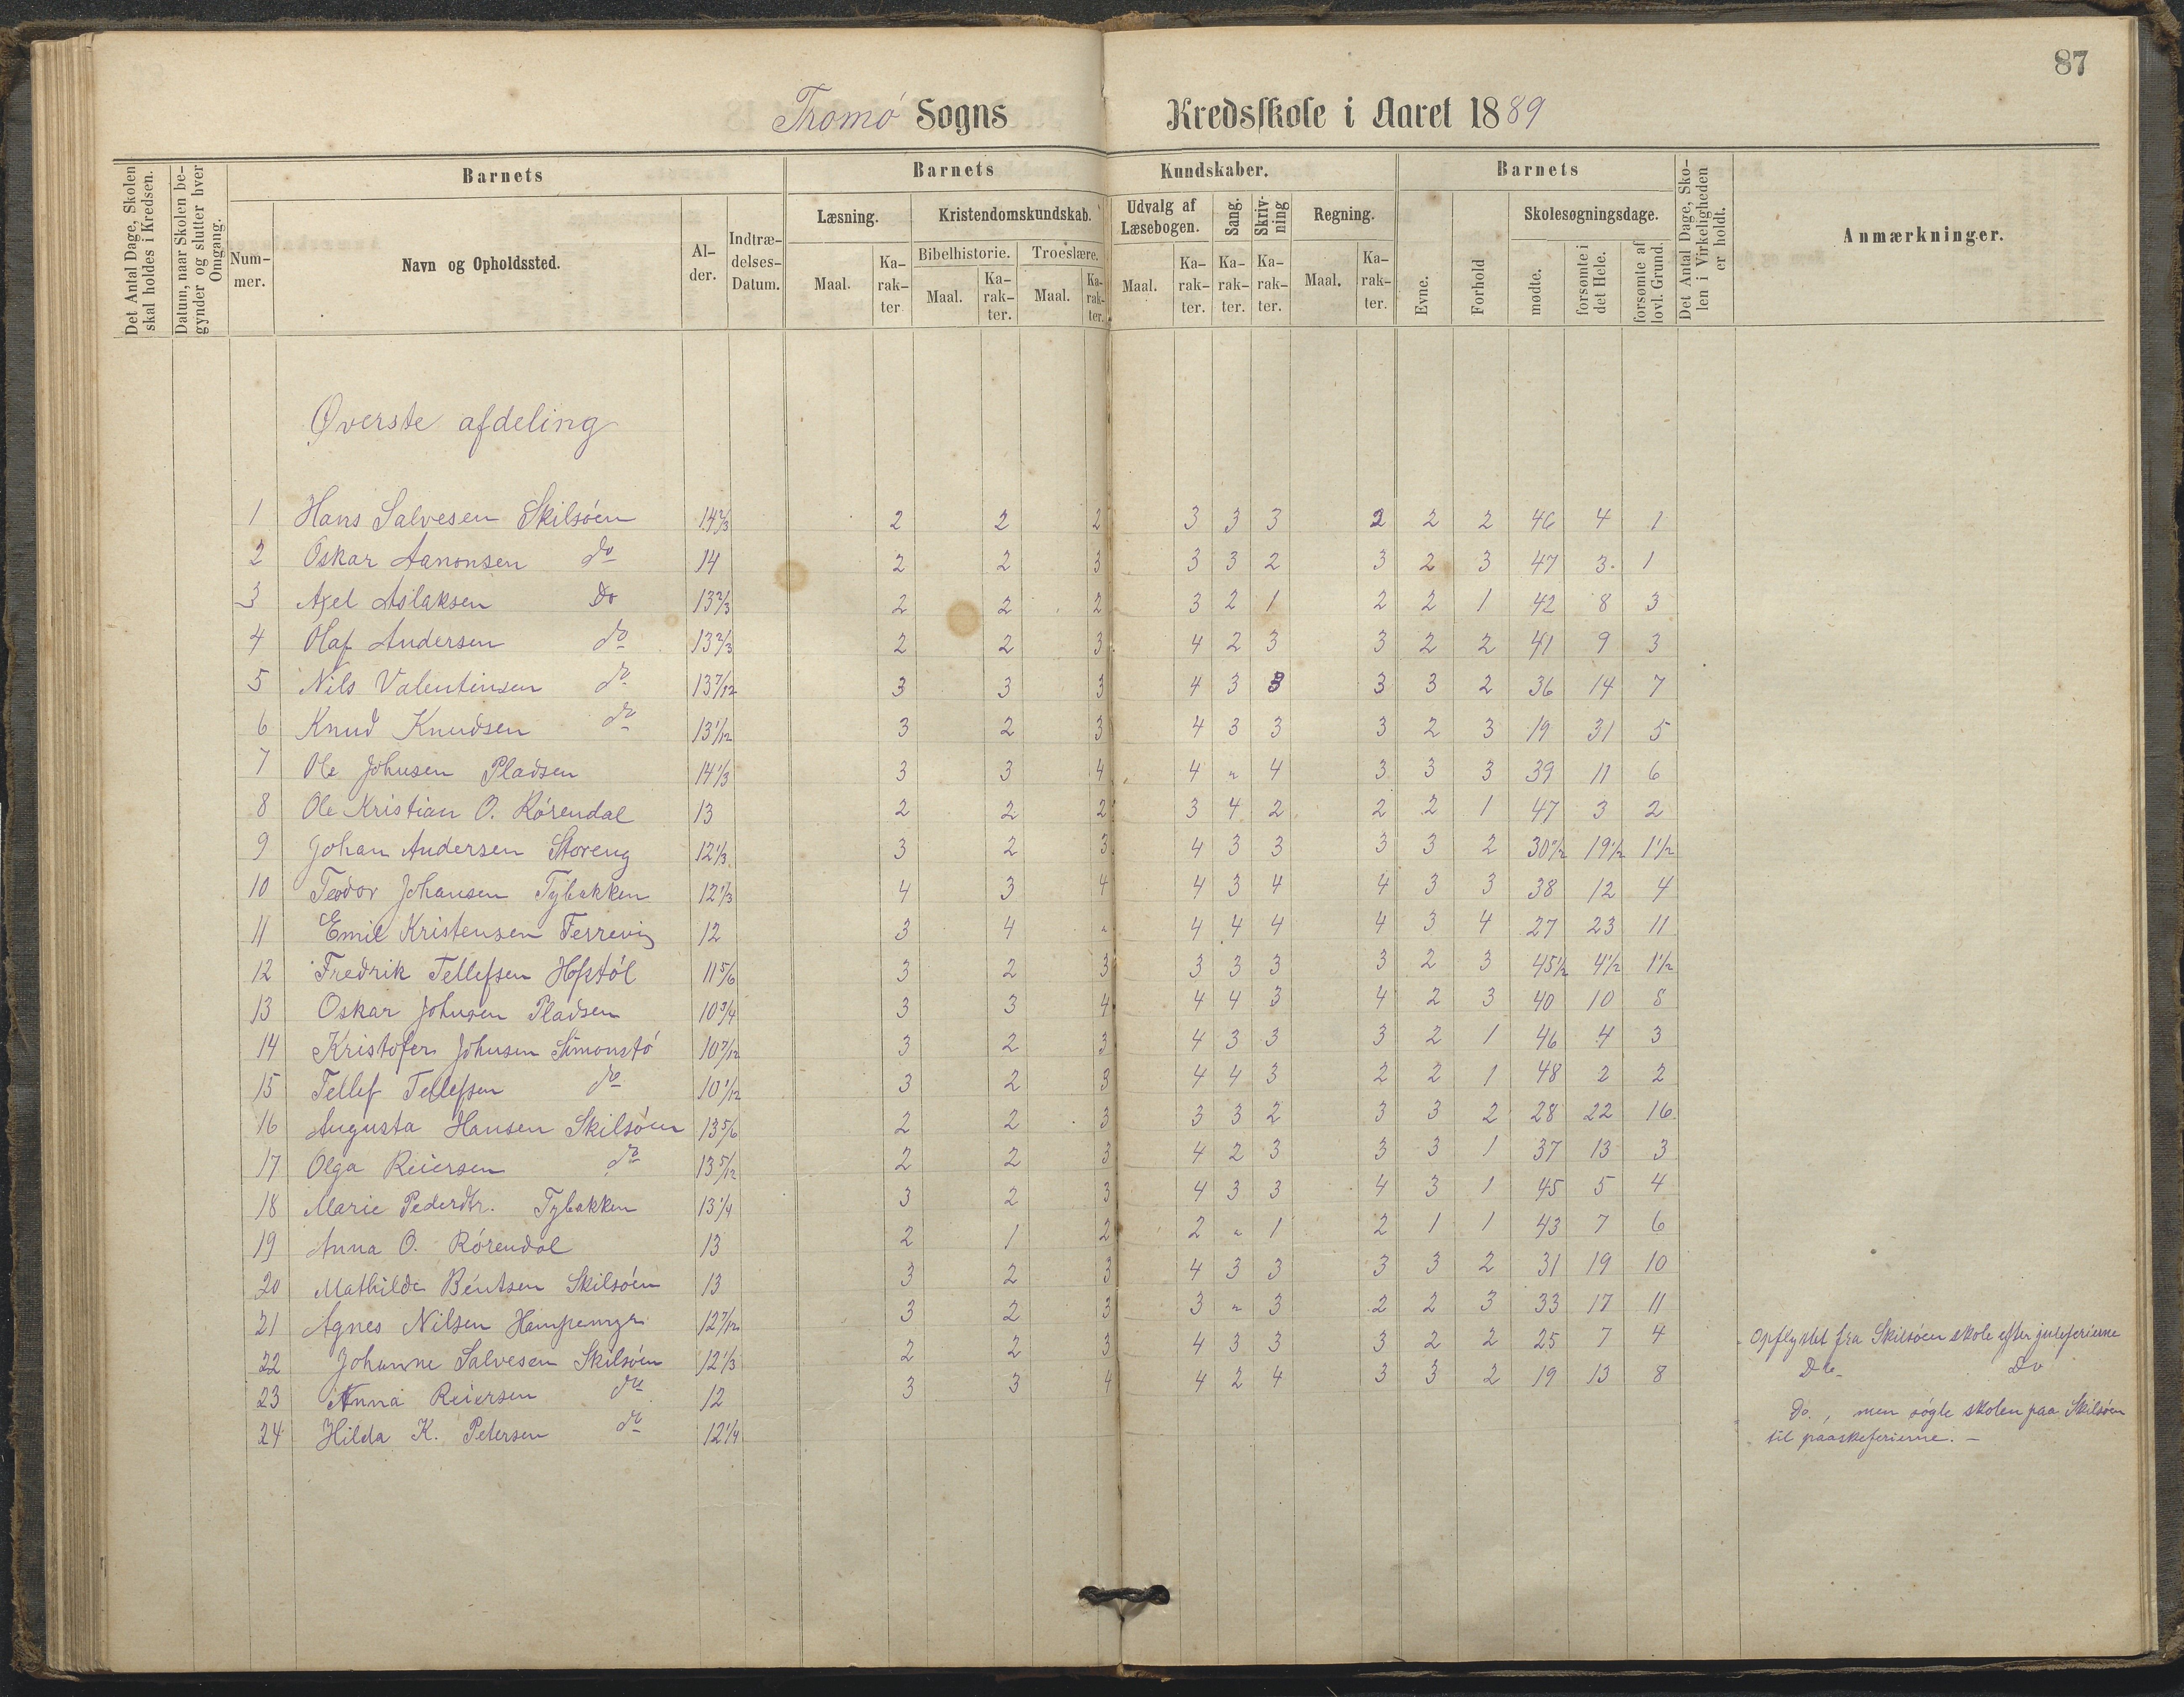 87
Tromø Sogns Kredsskole i Aaret 1889
Det Antal Dage, Skolen skal holdes i Kredsen.
Datum, naar Skolen begynder og slutter hver Omgang.
Barnets Barnets Kundskaber. Barnets
Det Antal Dage, Skolen i Virkeligheden er holdt.
Anmærkninger.
Nummer. Navn og Opholdssted. Alder. Indtrædelses-Datum.
Læsning. Kristendomskundskab. Udvalg af Læsebogen. Sang. Skrivning Regning. Evne. Forhold Skolesøgningsdage.
Bibelhistorie. Troeslære.
Maal. Karakter Maal. Karakter. Maal. Karakter. Maal. Karakter. Karakter. Karakter. Maal. Karakter. mødte. forsømte i det Hele. forsømte af lovl. Grund.
Øverste afdeling
1 Hans Salvesen Skilsøen 14 2/3 2 2 2 3 3 3 2 2 2 46 4 1
2 Oskar Aanonsen do 14 2 2 3 3 3 2 3 2 3 47 3. 1
3 Axel Aslaksen Do 13 2/3 2 2 2 3 2 1 2 2 1 42 8 3
4 Olaf Andersen do 13 2/3 2 2 3 4 2 3 3 2 2 41 9 3
5 Nils Valentinsen do 13 7/12 3 3 3 4 3 3 3 3 2 36 14 7
6 Knud Knudsen do 13 1/12 3 2 3 4 3 3 3 2 3 19 31 5
7 Ole Johnsen Pladsen 14 1/3 3 3 4 4 " 4 3 3 3 39 11 6
8 Ole Kristian O. Rørendal 13 2 2 2 3 4 2 2 2 1 47 3 2
9 Johan Andersen Storeng 12 1/3 3 2 3 4 3 3 3 3 2 30 1/2 19 1/2 1 1/2
10 Teodor Johansen Tybakken 12 1/3 4 3 4 4 3 4 4 3 3 38 12 4
11 Emil Kristensen 12 3 4 " 4 4 4 4 3 4 27 23 11
12 Fredrik Tellefsen Hofstøl 11 5/6 3 2 3 3 3 3 3 2 3 45 1/2 4 1/2 1 1/2
13 Oskar Johnsen Pladsen 10 3/4 3 3 4 4 4 3 4 2 3 40 10 8
14 Kristofer Johnsen Simonstø 10 7/12 3 2 3 4 3 3 3 2 1 46 4 3
15 Tellef Tellefsen do 10 1/12 3 2 3 4 4 3 2 2 1 48 2 2
16 Augusta Hansen Skilsøen 13 5/6 2 2 3 3 3 2 3 3 2 28 22 16
17 Olga Reiersen do 13 5/12 2 2 3 4 2 3 3 3 1 37 13 3
18 Marie Pedersdtr. Tybakken 13 1/4 3 2 3 4 3 3 4 3 1 45 5 4
19 Anna O. Rørendal 13 2 1 2 2 " 1 2 1 1 43 7 6
20 Mathilde Bentsen Skilsøen 13 3 2 3 4 3 3 3 3 2 31 19 10
21 Agnes Nilsen Hampemyr 12 7/12 3 2 3 3 " 3 2 2 3 33 17 11
22 Johanne Salvesen Skilsøen 12 1/3 2 2 3 4 3 3 3 2 2 25 7 4 Opflyttet fra Skilsøen skole efter juleferierne
23 Anna Reiersen do 12 3 3 4 4 2 4 3 3 2 19 13 8 Do Do
24 Hilda K. Petersen do 12 1/4 Do., men søgte skolen paa Skilsøen
til paaskeferierne. –